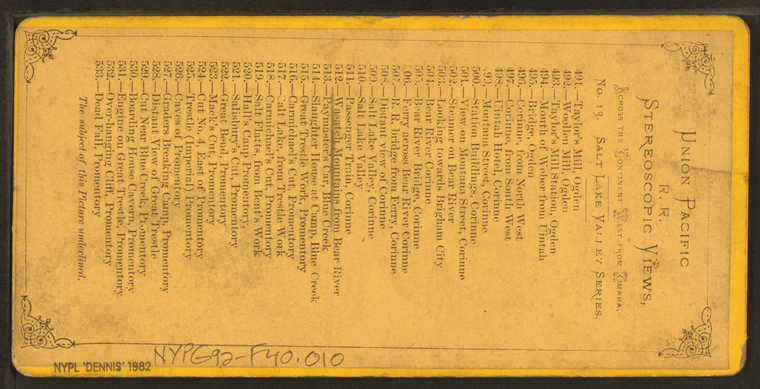 UNION PACIFIC
R. R.
STEREOSCOPIC VIEWS,
ACROSS THE CONTINENT WEST FROM OMAHA.
No. 19. SALT LAKE VALLEY SERIES.
491.—Taylor's Mill, Ogden
492.—Woollen Mill, Ogden
493.—Taylor's Mill Station, Ogden
494.—Mouth of Weber from Uintah
495.—Bridge, Ogden
496.—Corinne, from North West
497.—Corinne, from South West
498.—Uintah Hotel, Corinne
499.—Montana Street, Corinne
500.—Station Buildings, Corinne
501.—View on Montana Street, Corinne
502.—Steamer on Bear River
503.—Looking towards Brigham City
504.—Bear River Corinne
505.—Bear River Bridge, Corinne
506.—Ferry across Bear River Corinne
507.—R. R. Bridge from Ferry, Corinne
508.—Distant view of Corinne
509.—Salt Lake Valley, Corinne
510.—Salt Lake Valley
511.—Passenger Train, Corinne
512.—Wasatch Mountains from Bear River
513.—Paymaster's Car, Blue Creek
514.—Slaughter House at Camp, Blue Creek
515.—Great Trestle Work, Promontory
516.—Carmichael's Cut, Promontory
517.—Salt Lake, from Trestle Work
518.—Carmichael's Cut, Promontory
519.—Salt Flatts, from Bent's Work
520.—Hall's Camp Promontory,
521.—Salisbury's Cut, Promontory
522.—Great Bend, Promontory
523.—Mack's Cut, Promontory
524.—Cut No. 4, East of Promontory
525.—Trestle (Imperial) Promontory
526.—Caves of Promontory
527.—Graders Breaking Camp, Promontory
528.—Distant View of Great Trestle
529.—Cut Near Blue Creek, Promontory
530.—Boarding House Cavern, Promontory
531.—Engine on Great Trestle, Promontory
532.—Over-hanging Cliff, Promontory
533.—Dead Fall, Promontory
The subject of this Picture underlined.
NYPG92-F40.010
NYPL 'DENNIS' 1982